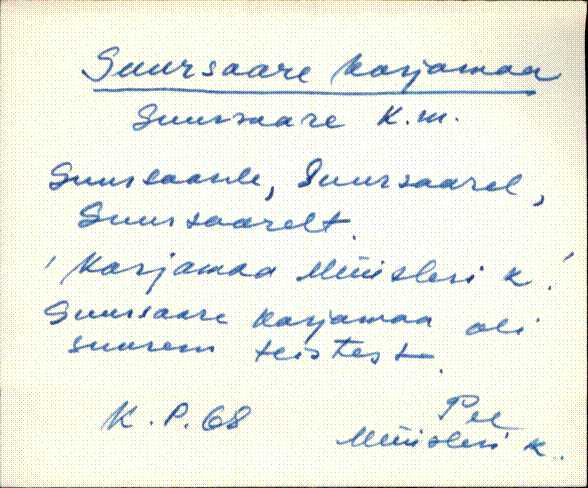 Suursaare karjamaa
Suursaare K.m.
Suursaarele, Suursaarel,
Suursaarelt.
'Karjamaa Müüsleri k.'
Suursaare karjamaa oli
suurem teistest.
K.P.68
Pee
Müüsleri k.